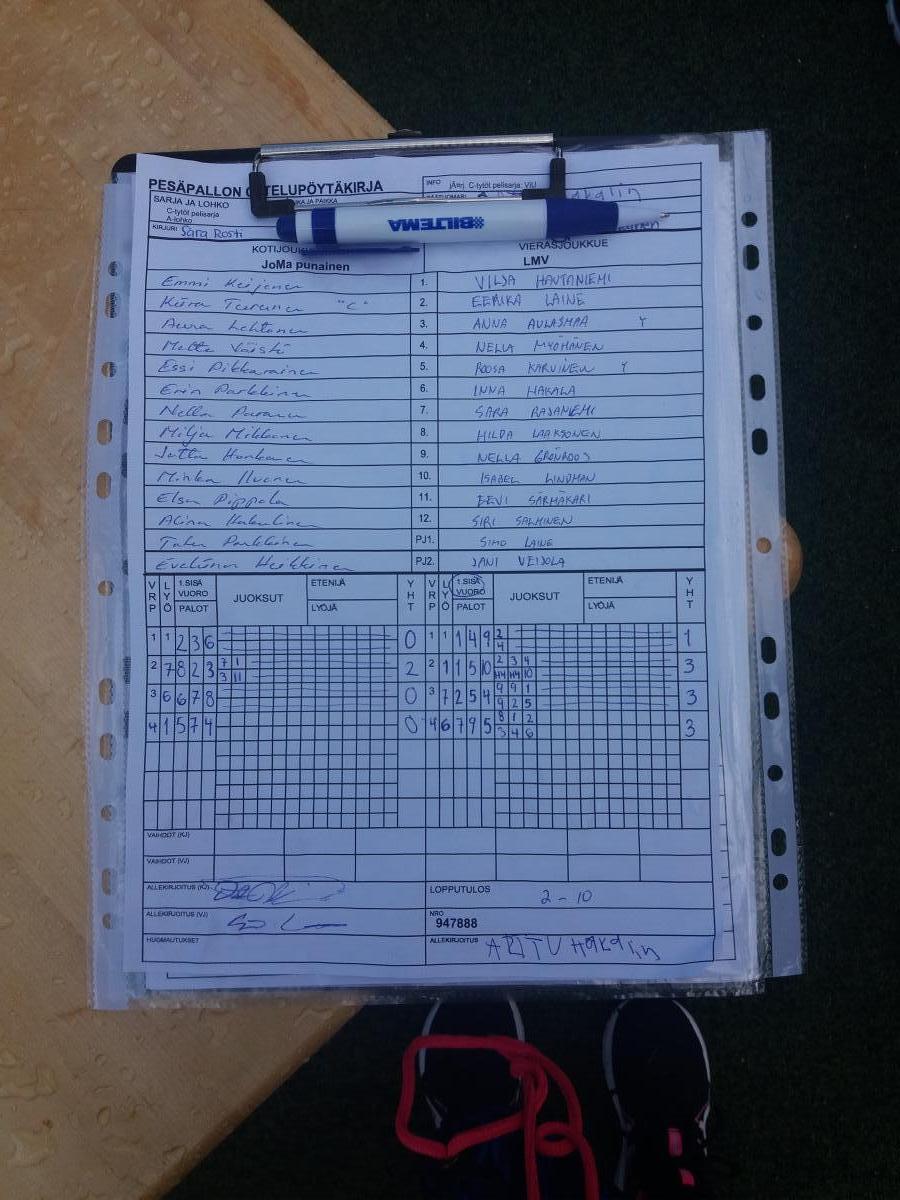 PESÄPALLON OTTELUPÖYTÄKIRJA
INFO jÄrj. C-tytöt pelisarja: ViU
SARJA JA LOHKO
AIKA JA PAIKKA
C-tytöt pelisarja
A-lohko
KIRJURI Sara Rosti
BILTEMA
KOTIJOUKKUE VIERASJOUKKUE
JoMa punainen LMV
Emmi Keijonen 1. VILJA HAUTANIEMI
"C" 2. EERIKA LAINE
Aura Lehtonen 3. ANNA AULASMAA Y
Metta Väistö 4. NELLA MYÖHÄNEN
Essi Pikkarainen 5. ROOSA KARVINEN Y
Erin Parkkinen 6. INNA HAKALA
Nella 7. SARA RAJANIEMI
Milja Mikkonen 8. HILDA LAAKSONEN
Jutta Honkanen 9. NELLA GRÖNROOS
Minka Iivonen 10. ISABEL LINDMAN
Elsa Pippola 11. EEVI SÄRMÄKARI
Alina 12. SIRI SALMINEN
Parkkinen PJ1. SIMO LAINE
Eveliina Heikkinen PJ2. JANI VEIJOLA
VRP LYÖ 1.SISÄ VUORO PALOT JUOKSUT ETENIJÄ LYÖJÄ YHT VRP LYÖ 1.SISÄ VUORO PALOT JUOKSUT ETENIJÄ LYÖJÄ YHT
1 1 2 3 6 0 1 1 1 4 9 2 1
4
2 7 8 2 3 7 1 2 2 1 1 5 10 2 3 4 3
3 11 H4 H4 10
3 6 6 7 8 0 3 7 2 5 4 9 9 1 3
9 2 5
4 1 5 7 4 0 4 6 7 9 5 8 1 2 3
3 4 6
VAIHDOT (KJ)
VAIHDOT (VJ)
ALLEKIRJOITUS (KJ) LOPPUTULOS 2 - 10
ALLEKIRJOITUS (VJ) NRO
947888
HUOMAUTUKSET ALLEKIRJOITUS ARTTU Hakalin